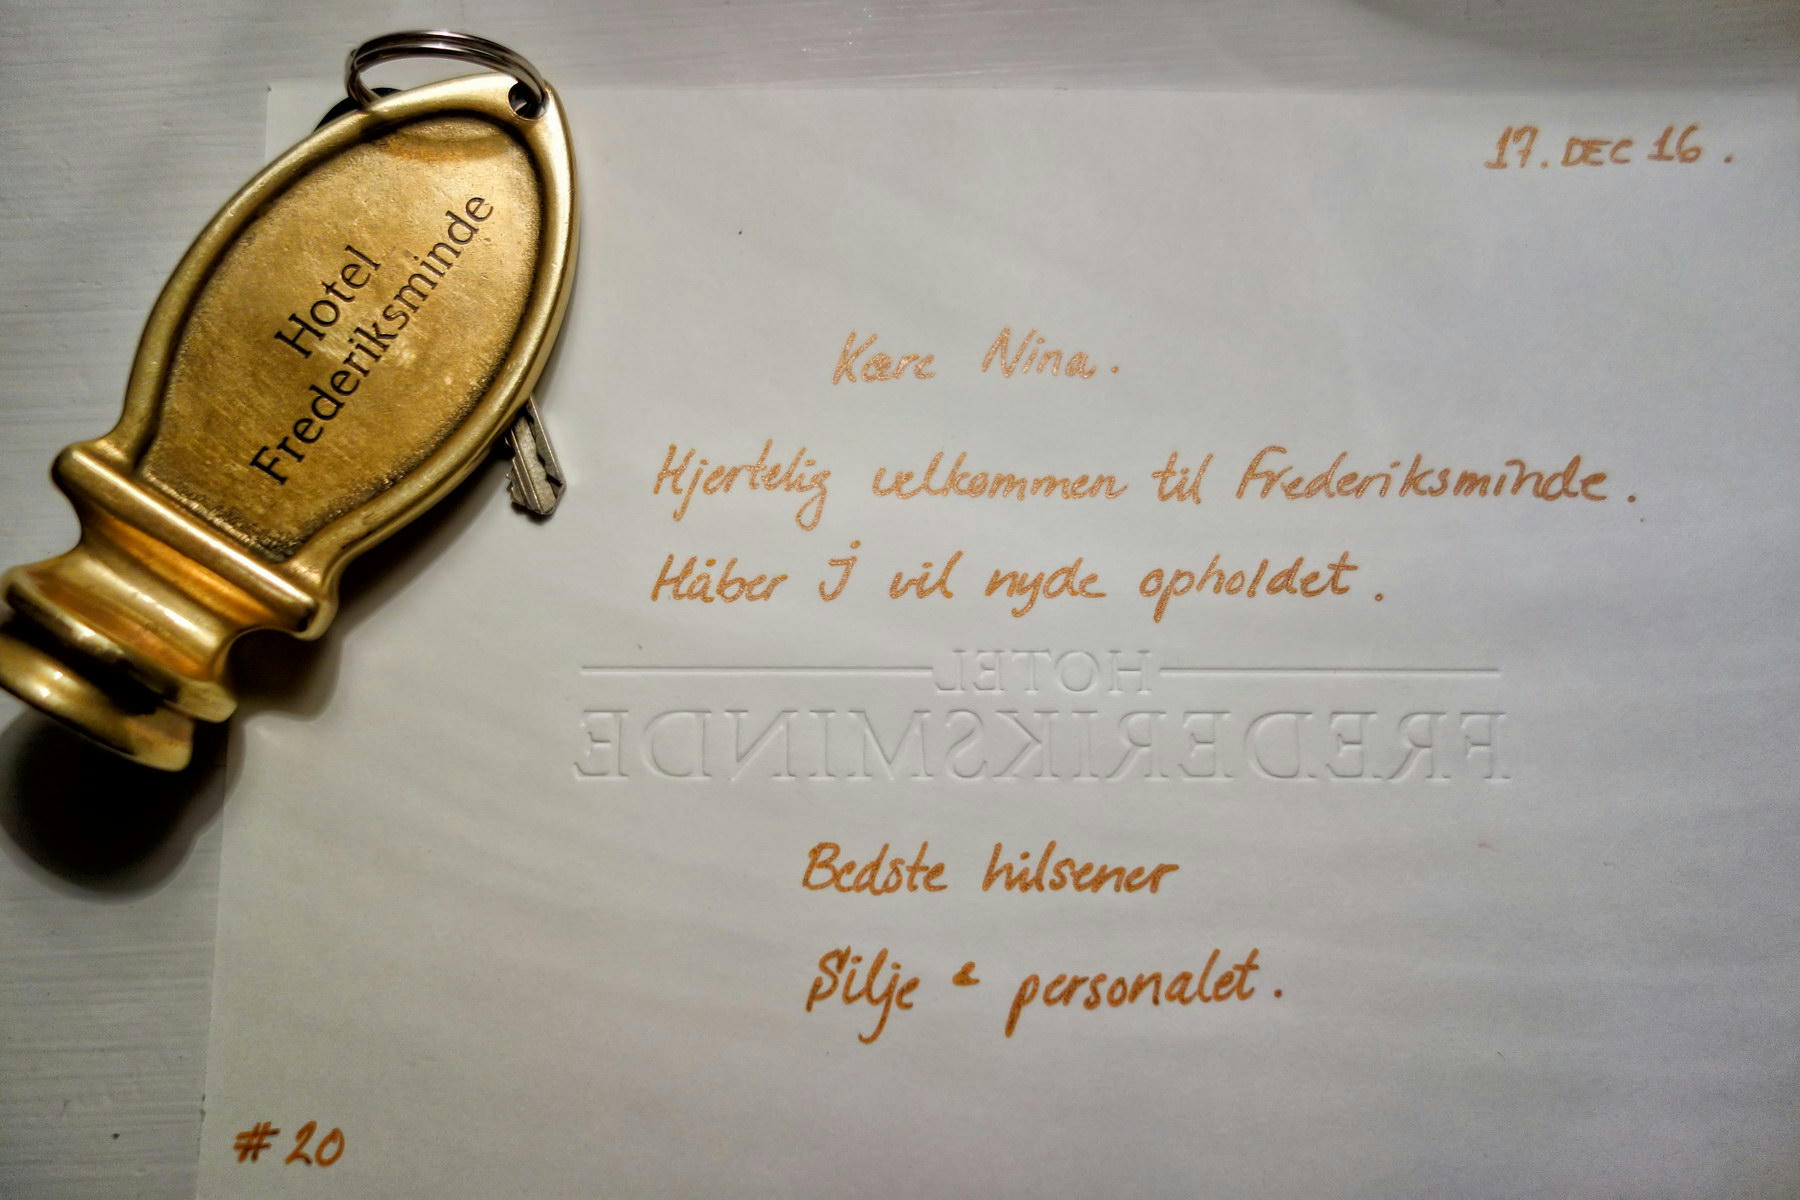 Hotel
Frederiksminde
17. DEC 16.
Kære Nina.
Hjertelig velkommen til Frederiksminde.
Håber I vil nyde opholdet.
HOTEL
FREDERIKSMINDE
Bedste hilsener
Silje & personalet.
# 20